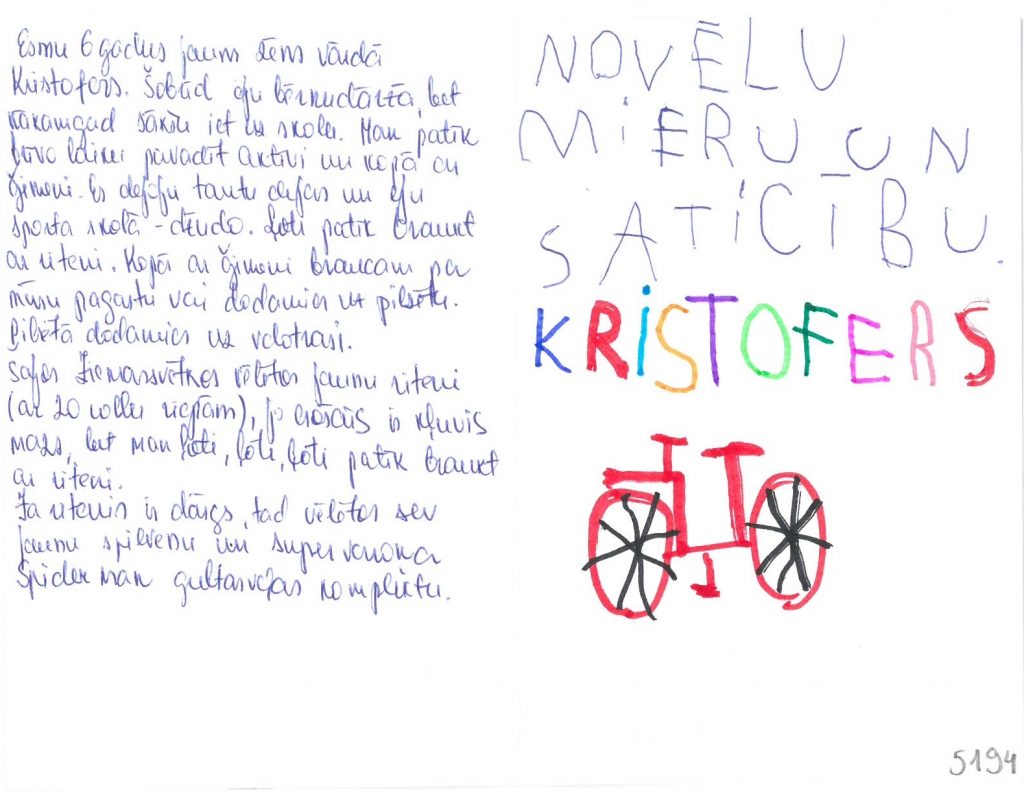 Esmu 6 gadus jauns zēns vārdā
Kristofers. Šobrīd eju bērnudārzā, bet
nākamgad sākšu iet uz skolu. Man patīk
brīvo laiku pavadīt aktīvi un kopā ar
ģimeni. Es dejoju tautu dejas un eju
sporta skolā - džudo. Ļoti patīk braukt
ar riteni. Kopā ar ģimeni braucam pa
mūsu pagastu vai dodamies uz pilsētu.
Pilsētā dodamies uz velotrasi.
Šajos Ziemassvētkos vēlētos jaunu riteni
(ar 20 collu riepām), jo esošais ir kļuvis
mazs, bet man ļoti, ļoti, ļoti patīk braukt
ar riteni.
Ja ritenis ir dārgs, tad vēlētos sev
jaunu spilvenu un supervaroņa
Spider man gultasveļas komplektu.
NOVĒLU
MiERU UN
SATiCĪBU.
KRiSTOFERS
5194